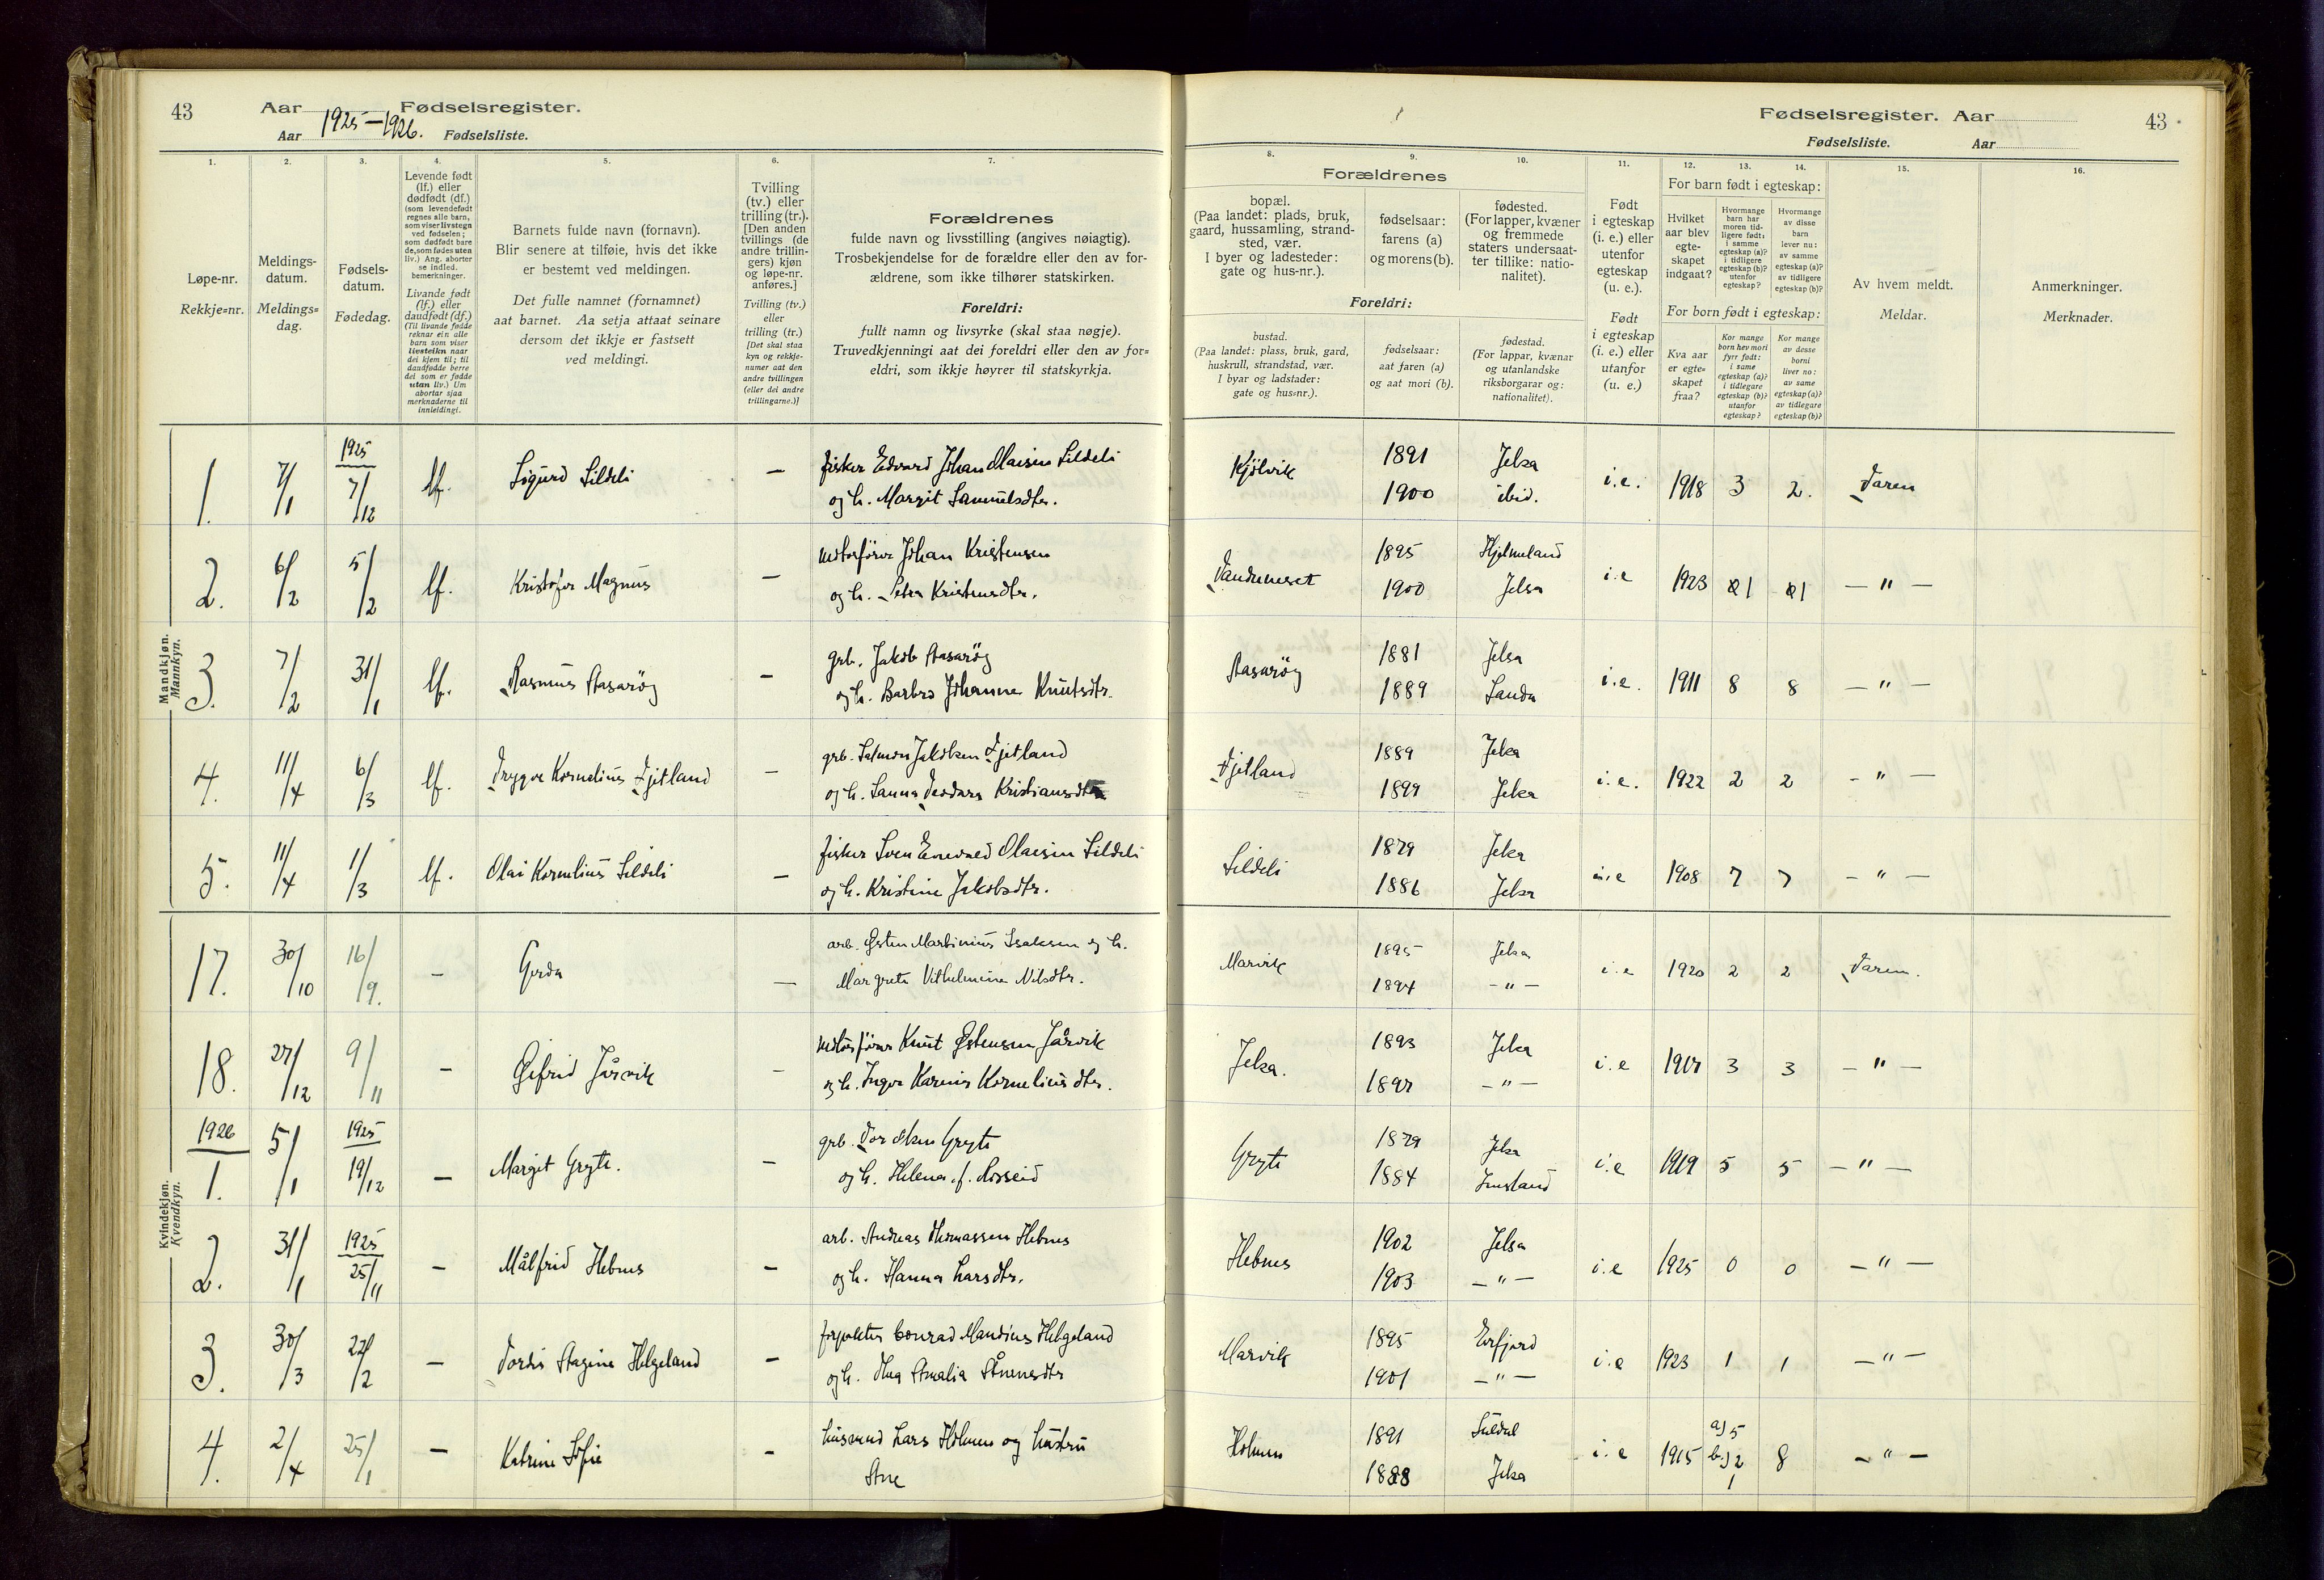 43 Aar 1925–1926. Fødselsregister.
Aar Fødselsliste.
1.
2.
3.
4.
5.
6.
7.
Løpe-nr.
Rekkje=nr.
Meldings-
datum.
Meldings=
dag.
Fødsels-
datum.
Fødedag.
Levende født
(lf.) eller
dødfødt (df.)
(som levendefødt
regnes alle barn,
som viser livstegn
ved fødselen;
som dødfødt bare
de, som fødes uten
liv.) Ang. aborter
se indled.
bemerkninger.
Livande født
(lf.) eller
daudfødt (df.)
(Til livande fødde
reknar ein alle
barn som viser
livsteikn naar
dei kjem til; til
daudfødde berre
dei som er fødde
utan liv.) Um
abortar sjaa
merknaderne til
innleidingi.
Barnets fulde navn (fornavn).
Blir senere at tilføie, hvis det ikke
er bestemt ved meldingen.
Det fulle namnet (fornamnet)
aat barnet. Aa setja attaat seinare
dersom det ikkje er fastsett
ved meldingi.
Tvilling
(tv.) eller
trilling (tr.).
[Den anden
tvillings (de
andre trillin-
gers) kjøn
og løpe-nr.
anføres.]
Tvilling (tv.)
eller
trilling (tr.)
[Det skal staa
kyn og rekkje-
numer aat den
andre tvillingen
(eller dei andre
trillingarne.)]
Forældrenes
fulde navn og livsstilling (angives nøiagtig).
Trosbekjendelse for de forældre eller den av for-
ældrene, som ikke tilhører statskirken.
Foreldri:
fullt namn og livsyrke (skal staa nøgje).
Truvedkjenningi aat dei foreldri eller den av for=
eldri, som ikkje høyrer til statskyrkja.
Fødselsregister. Aar 43
Fødselsliste. Aar
8.
9.
10.
11.
12.
13.
14.
15.
16.
Forældrenes
bopæl.
(Paa landet: plads, bruk,
gaard, hussamling, strand-
sted, vær.
I byer og ladesteder:
gate og hus-nr.).
fødselsaar:
farens (a)
og morens (b).
fødested.
(For lapper, kvæner
og fremmede
staters undersaat-
ter tillike: natio-
nalitet).
Foreldri:
bustad.
(Paa landet: plass, bruk, gard,
huskrull, strandstad, vær.
I byar og ladstader:
gate og hus=nr.).
fødselsaar:
aat faren (a)
og aat mori (b).
fødestad.
(For lappar, kvænar
og utanlandske
riksborgarar og:
nationalitet).
Født
i egteskap
(i. e.) eller
utenfor
egteskap
(u. e.).
Født
i egteskap
(i. e.) eller
utanfor
(u. e.)
For barn født i egteskap:
Hvilket
aar blev
egte-
skapet
indgaat?
Hvormange
barn har
moren tid-
ligere født:
i samme
egteskap (a)?
i tidligere
egteskap (b)?
utenfor
egteskap?
Hvormange
av disse
barn
lever nu:
av samme
egteskap (a)?
av tidligere
egteskap (b)?
For born født i egteskap:
Kva aar
er egte=
skapet
fraa?
Kor mange
born hev mori
fyrr født:
i same
egteskap (a)?
i tidlegare
egteskap (b)?
utanfor
egteskap?
Kor mange
av desse
borni
liver no:
av same
egteskap (a)?
av tidlegare
egteskap (b)?
Av hvem meldt.
Meldar.
Anmerkninger.
Merknader.
Mandkjøn.
Mannkyn.
1. 7/1 1925 7/12 lf. Sigurd Sildeli — fisker Edvard Johan Olaisen Sildeli
og h. Margit Samuelsdtr.
Kjølvik 1891 Jelsa i.e. 1918 3 2. Faren
1900 ibid.
2. 6/2 5/2 lf. Kristofer Magnus — motorfører Johan Kristensen
og h. Petra Kristensdtr.
1895 Hjelmeland i.e 1923 1 1 — " —
1900 Jelsa
3. 7/2 31/1 lf. Rasmus Aasarøg — grb. Jakob Aasarøg
og h. Barbro Johanne Knutsdtr.
Aasarøg 1881 Jelsa i.e. 1911 8 8 — " —
1889 Sauda
4. 11/4 6/3 lf. Trygve Kornelius Fjetland — grb. Salmon Jakobsen Fjetland
og h. Sanna Teodora Kristiansdtr
Fjetland 1889 Jelsa i.e. 1922 2 2 — " —
1899 Jelsa
5. 11/4 1/3 lf. Olai Kornelius Sildeli — fisker Sven Enevald Olaisen Sildeli
og h. Kristine Jakobsdtr.
Sildeli 1879 Jelsa i.e 1908 7 7 — " —
1886 Jelsa
Kvindekjøn.
Kvendkyn.
17. 30/10 16/9. — Gerda — arb. Østen Martinius Isaksen og h.
Margrete Vilhelmine Nilsdtr.
Marvik 1895 Jelsa i.e 1920 2 2 Faren.
1894 — " —
18. 27/12 9/11 — Øifrid Jårvik — motorfører Knut Østensen Jårvik
og h. Inger Karine Korneliusdtr.
Jelsa. 1893 Jelsa i.e 1917 3 3 — " —
1897 — " —
1926
1. 5/1 1925 19/12 — Margit Gryte. — grb. Gryte
og h. Helena f. Rosseid
Gryte 1879 Jelsa i.e 1919 5 5 — " —
1884 Imsland
2. 31/1 1925 25/11 — Målfrid Hebnes — arb. Andreas Thomassen Hebnes
og h. Hanna Larsdtr.
Hebnes 1902 Jelsa i.e 1925 0 0 — " —
1903 — " —
3. 30/3 22/2 — Tordis Aagine Helgeland — forpakter Conrad Mandius Helgeland
og h. Thea Amalia Ånensdtr
Marvik 1895 Erfjord i.e 1923 1 1 — " —
1901 — " —
4. 2/4 25/1 — Katrine Sofie — husmand Lars Holmen og hustru
Ane
Holmen 1891 Suldal i.e 1915 a) 5 b) 2 1 8 — " —
1888 Jelsa